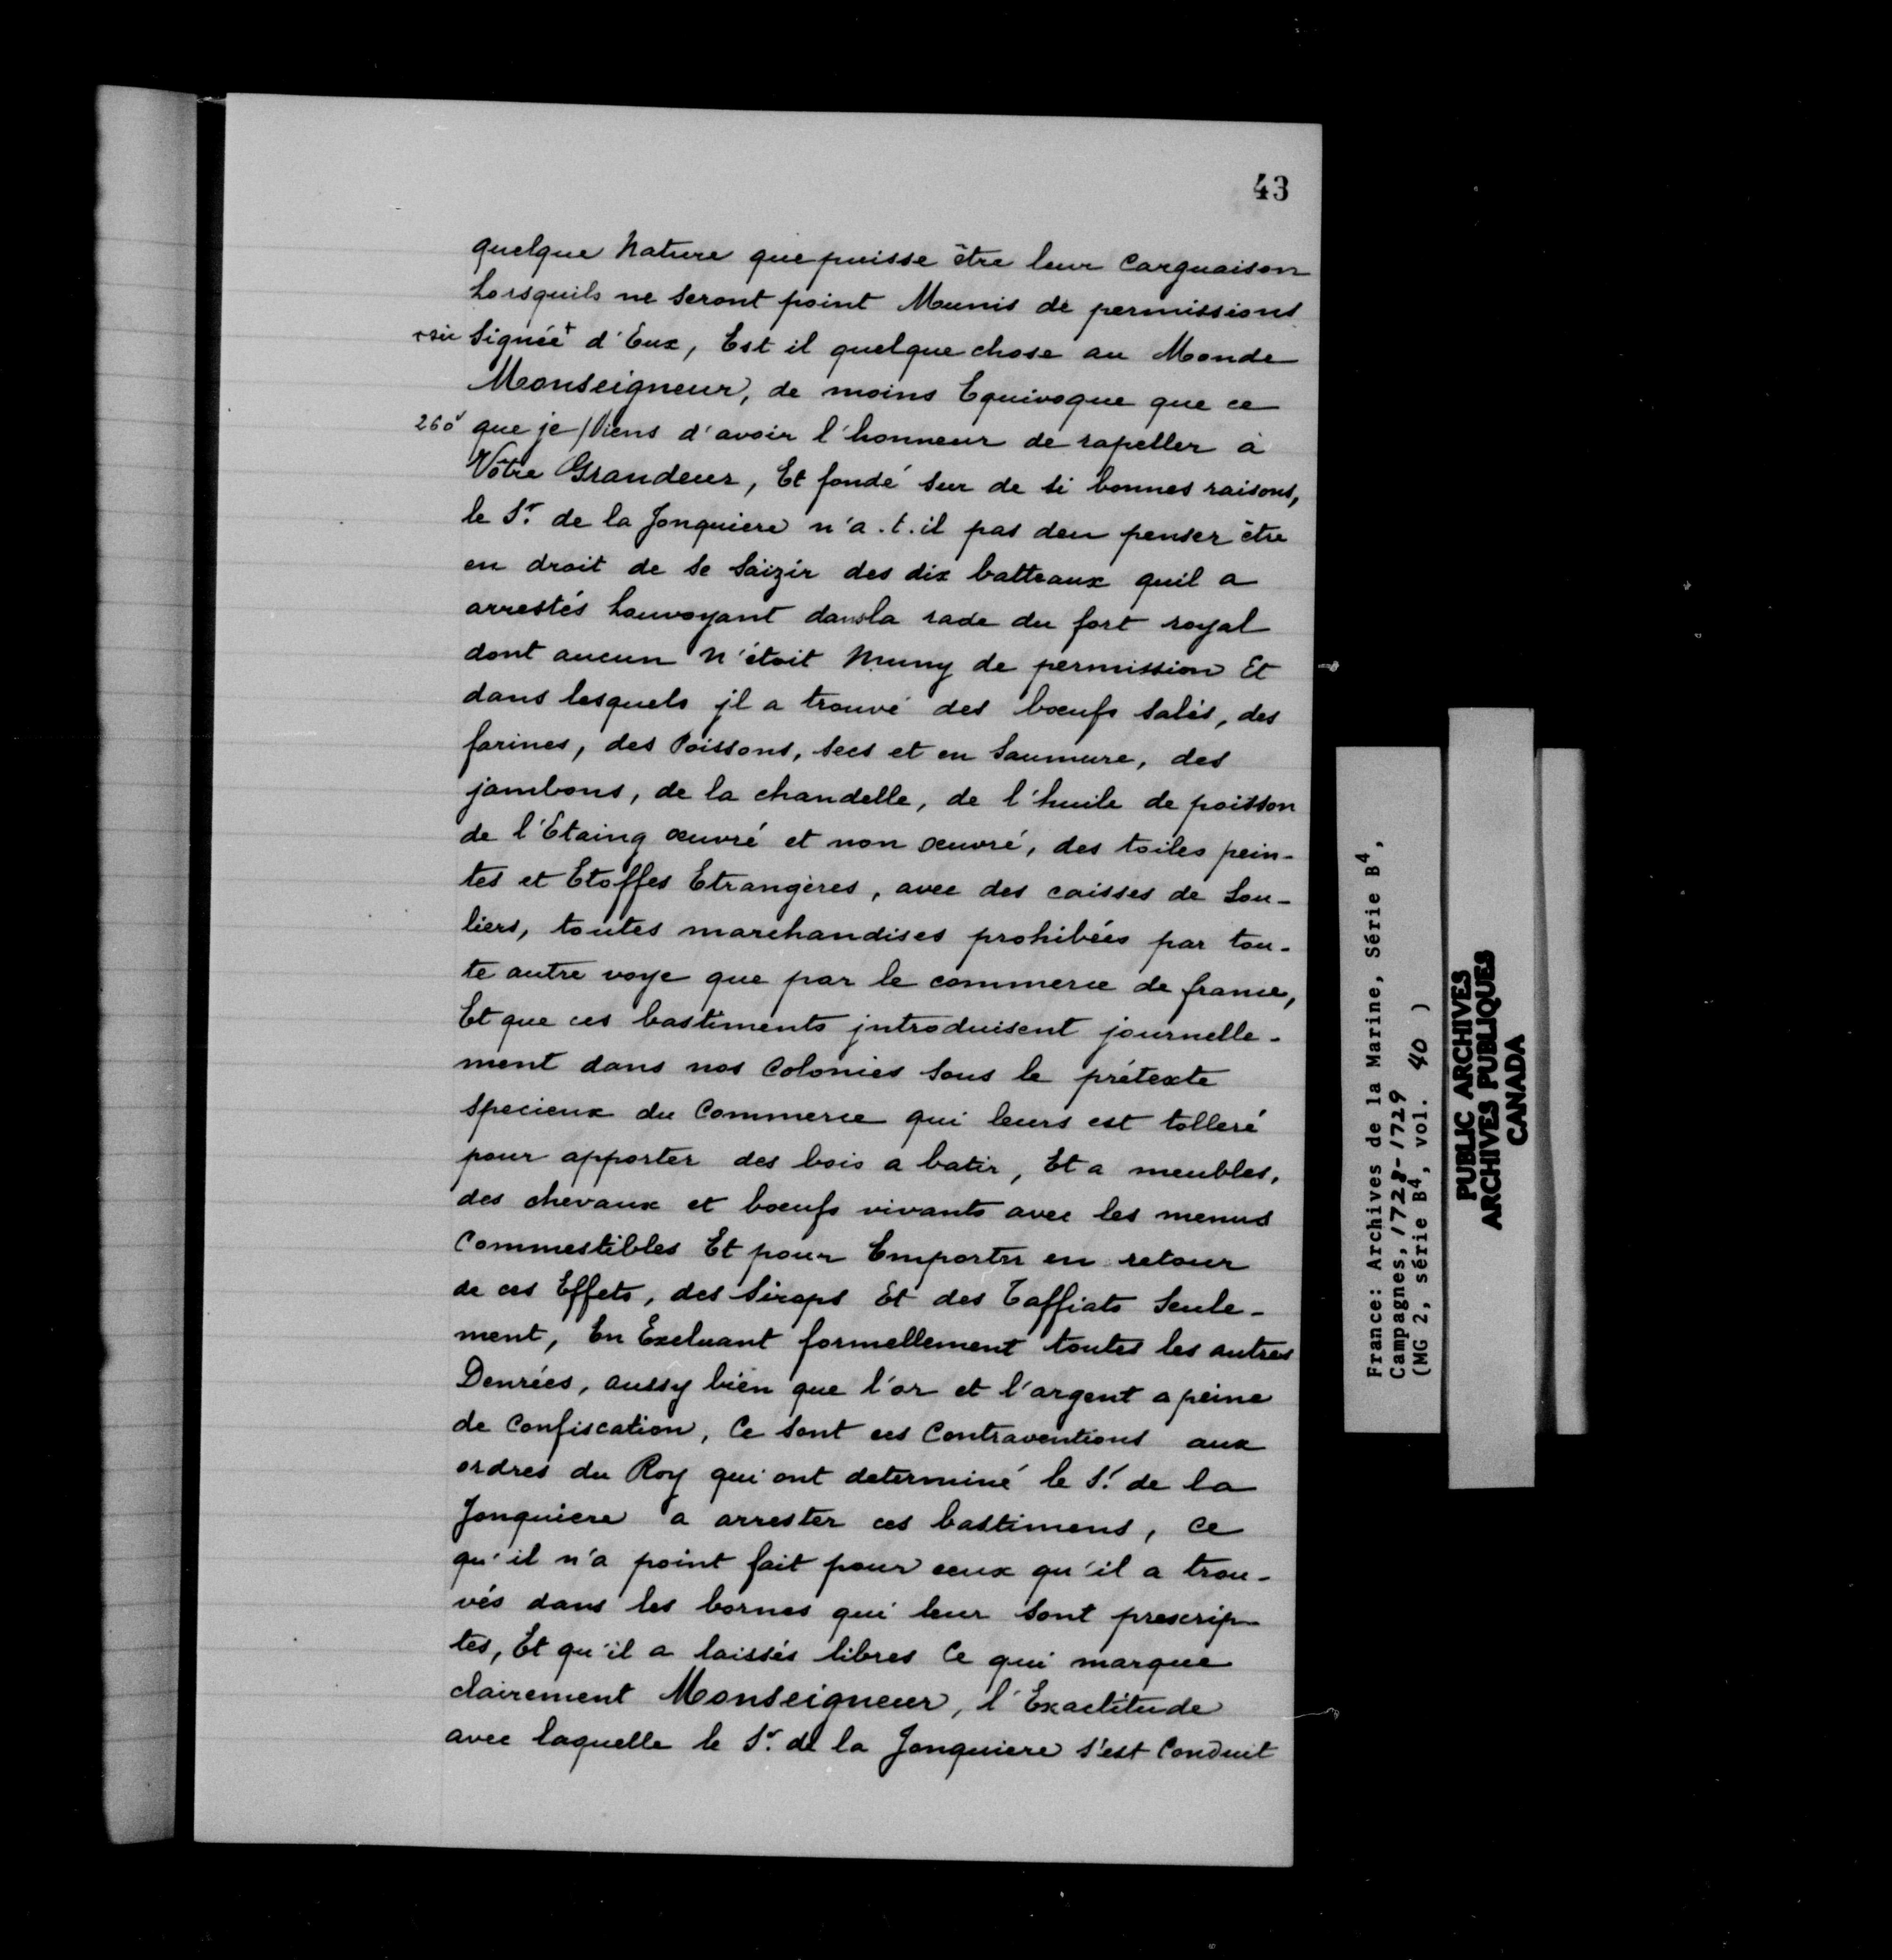 43
quelque Nature que puisse être leur Carguaison
Lorsquils ne Seront point Munis de permissions
+sic Signée+ d'Eux, Est il quelque chose au Monde
Monseigneur, de moins Equivoque que ce
260v que je / Viens d'avoir l'honneur de rapeller à
Vôtre Grandeur, Et fondé Sur de si bonnes raisons,
le Sr. de la Jonquiere n'a.t.il pas deu penser être
en droit de se Saizir des dix batteaux quil a
arrestés Louvoyant dans la rade du fort royal
dont aucun N'étoit Muny de permission Et
dans lesquels jl a trouvé des bœufs Salés, des
farines, des Poissons, secs et en Saumure, des
jambons, de la chandelle, de l'huile de poisson
de l'Etaing œuvré et non œuvré, des toiles pein-
tes et Etoffes Etrangères, avec des caisses de Sou-
liers, toutes marchandises prohibées par tou-
te autre voye que par le commerce de france,
Et que ces bastiments jntroduisent journelle-
ment dans nos Colonies Sous le prétexte
Specieux du Commerce qui leurs est tolleré
pour apporter des bois a batir, Et a meubles,
des chevaux et bœufs vivants avec les menus
Commestibles Et pour Emporter en retour
de ces Effets, des Sirops Et des Taffiats Seule-
ment, En Excluant formellement toutes les autres
Denrées, aussy bien que l'or et l'argent a peine
de Confiscation, Ce Sont ces Contraventions aux
ordres du Roy qui ont determiné le Sr. de la
Jonquiere a arrester ces bastimens, Ce
qu'il n'a point fait pour ceux qu'il a trou-
vés dans les bornes qui leur Sont prescrip-
tes, Et qu'il a laissés libres Ce qui marque
clairement Monseigneur, l'Exactitude
avec laquelle le Sr. de la Jonquiere s'est Conduit
France: Archives de la Marine, Série B4,
Campagnes, 1728-1729
(MG 2, série B4, vol. 40 )
PUBLIC ARCHIVES
ARCHIVES PUBLIQUES
CANADA